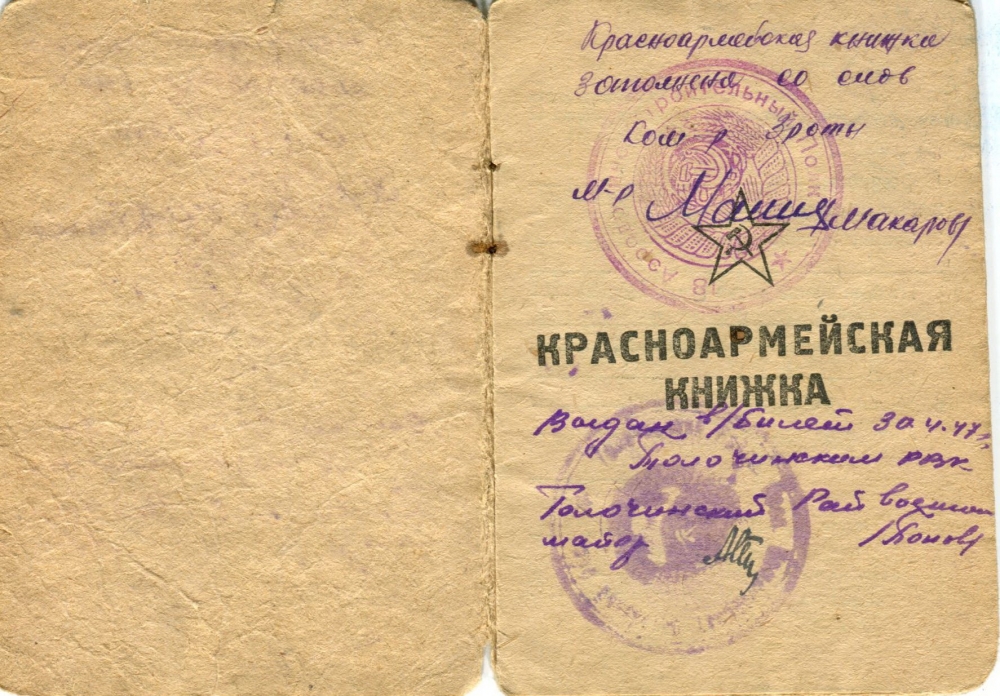 Красноармейская книжка
заполнена со слов
Ком р 3 роты
м-р Макаров
КРАСНОАРМЕЙСКАЯ
КНИЖКА
Выдан в/билет 30.4.47 г,
Толочинским РВК
Толочинский Рай военком
майор /Попов/